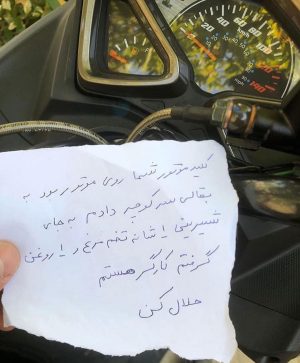 کلید موتور شما روی موتور بود به
بقالی سر کوچه دادم به جای
شیرینی ۱ شانه تخم مرغ و ۱ روغن
گرفتم کارگر هستم
حلال کن